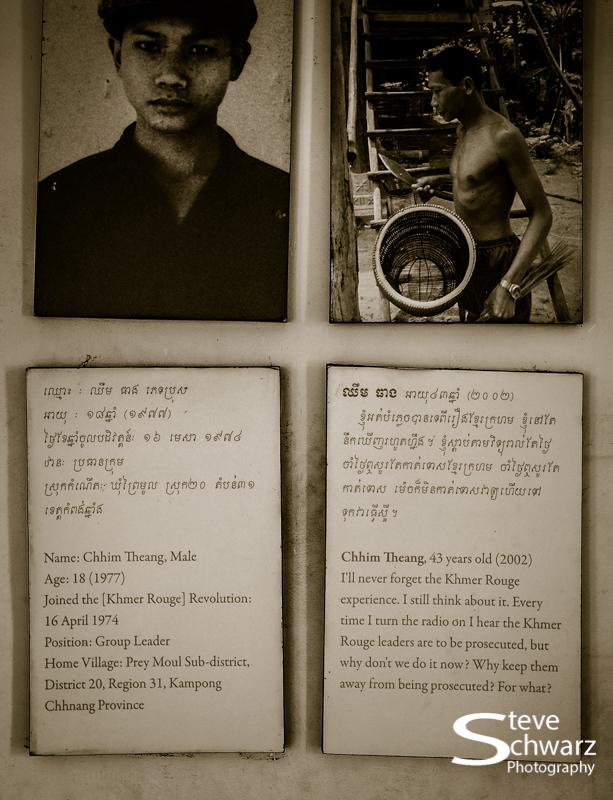 ឈ្មោះ : ឈឹម ធាង ភេទប្រុស
អាយុ : ១៨ឆ្នាំ (១៩៧៧)
ថ្ងៃខែឆ្នាំចូលបដិវត្តន៍: ១៦ មេសា ១៩៧៤
ឋានៈ ប្រធានក្រុម
ស្រុកកំណើត: ឃុំព្រៃមូល ស្រុក២០ តំបន់៣១
ខេត្តកំពង់ឆ្នាំង
Name: Chhim Theang, Male
Age: 18 (1977)
Joined the [Khmer Rouge] Revolution:
16 April 1974
Position: Group Leader
Home Village: Prey Moul Sub-district,
District 20, Region 31, Kampong
Chhnang Province
ឈឹម ធាង អាយុ៤៣ឆ្នាំ (២០០២)
ខ្ញុំអត់បំភ្លេចបានទេពីរឿងខ្មែរក្រហម ខ្ញុំនៅតែ
នឹកឃើញរហូតហ្នឹង។ ខ្ញុំស្តាប់តាមវិទ្យុរាល់តែថ្ងៃ
ចាំថ្ងៃឮសូរតែកាត់ទោសខ្មែរក្រហម ចាំថ្ងៃឮសូរតែ
កាត់ទោស ម៉េចក៏មិនកាត់ទោសវាឲ្យហើយទៅ
ទុកវាធ្វើស្អី។
Chhim Theang, 43 years old (2002)
I'll never forget the Khmer Rouge
experience. I still think about it. Every
time I turn the radio on I hear the Khmer
Rouge leaders are to be prosecuted, but
why don't we do it now? Why keep them
away from being prosecuted? For what?
Steve
Schwarz
Photography